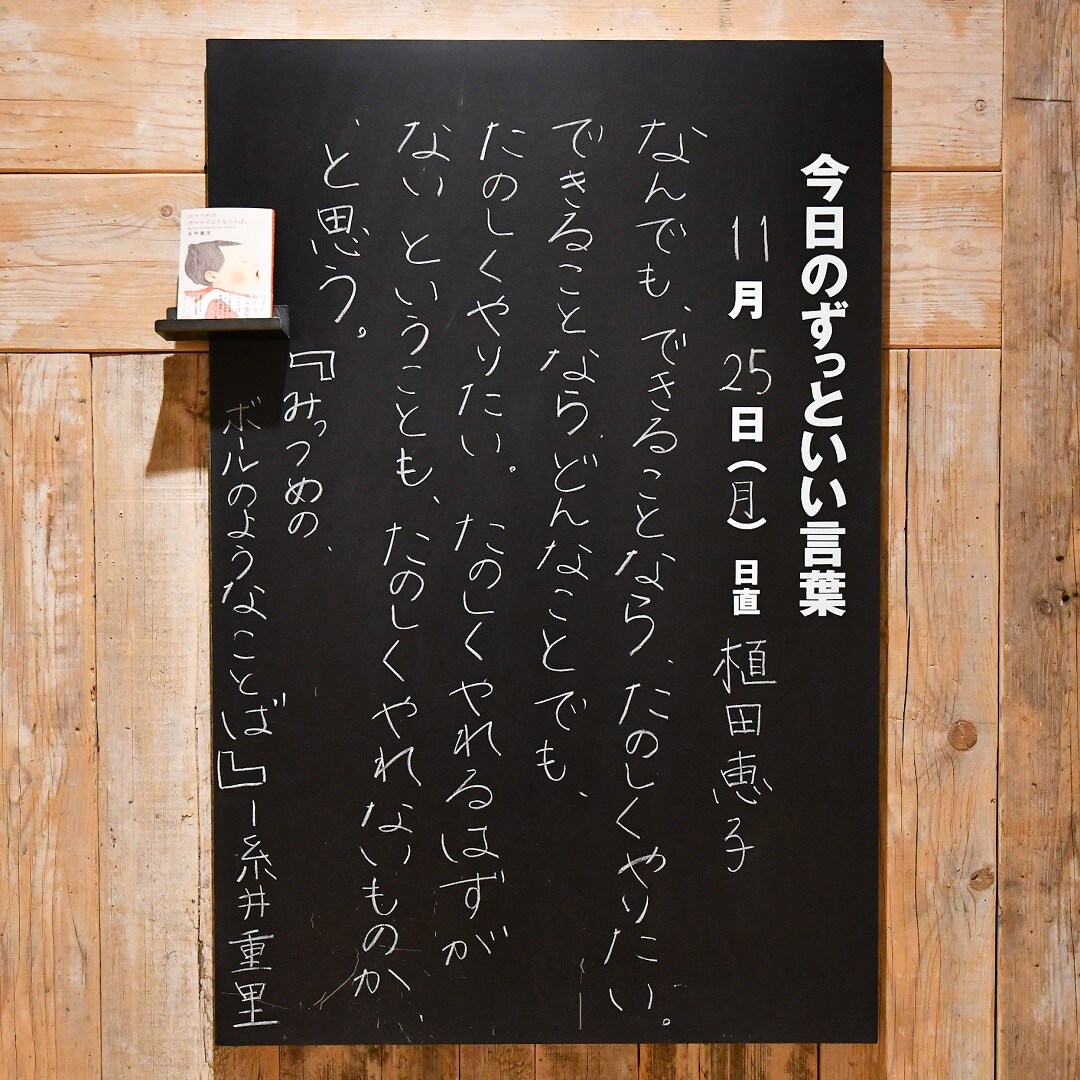 今日のずっといい言葉
11月25日(月) 日直 植田恵子
なんでも、できることなら、たのしくやりたい。
できることなら、どんなことでも、
たのしくやりたい。たのしくやれるはずが
ないということも、たのしくやれないものか
、と思う。
『みっつめの、
ボールのようなことば』ー糸井重里
ボールのようなことば。
糸井重里